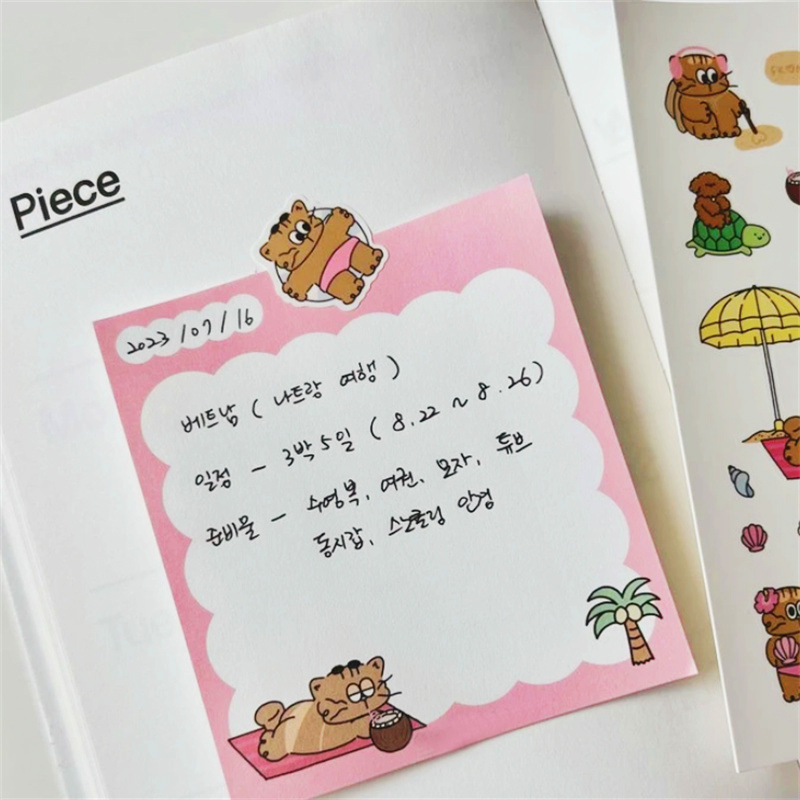 Piece
2023/07/16
베트남 ( 나트랑 여행 )
일정 - 3박 5일 ( 8.22 ~ 8.26)
준비물 - 수영복, 여권, 모자, 튜브
동시랍, 스노쿨링 안경